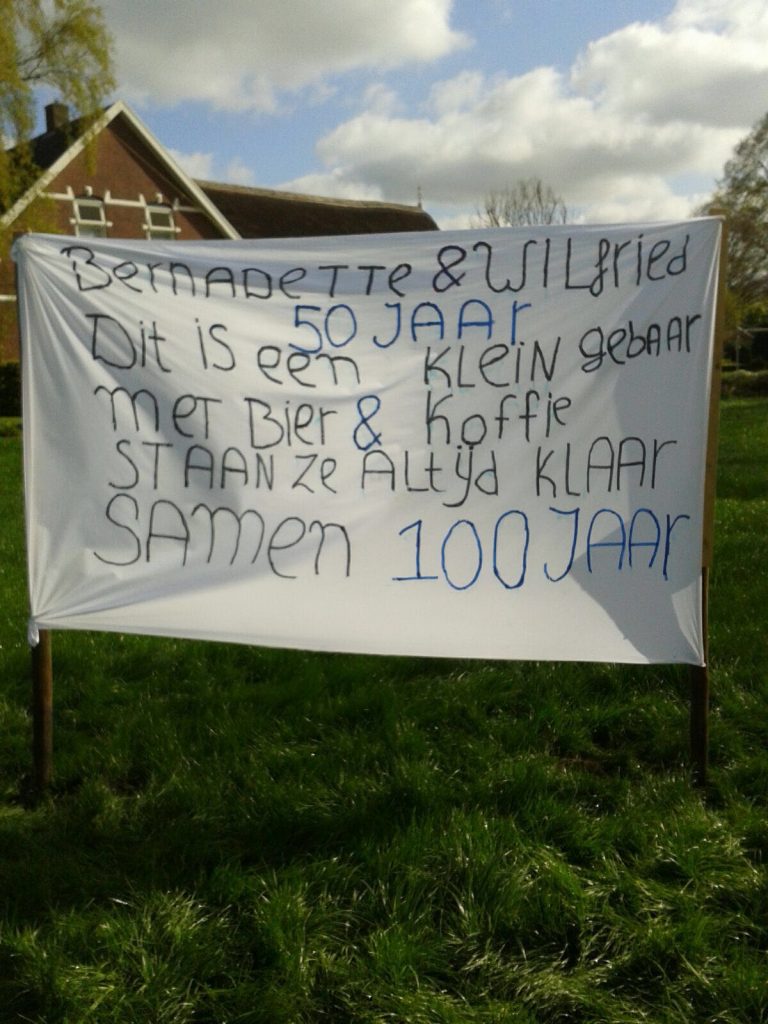 Bernadette & Wilfried
50 JAAr
Dit is een Klein gebaar
met Bier & Koffie
STAAN ze Altijd KLAAr
SAmen 100 JAAr